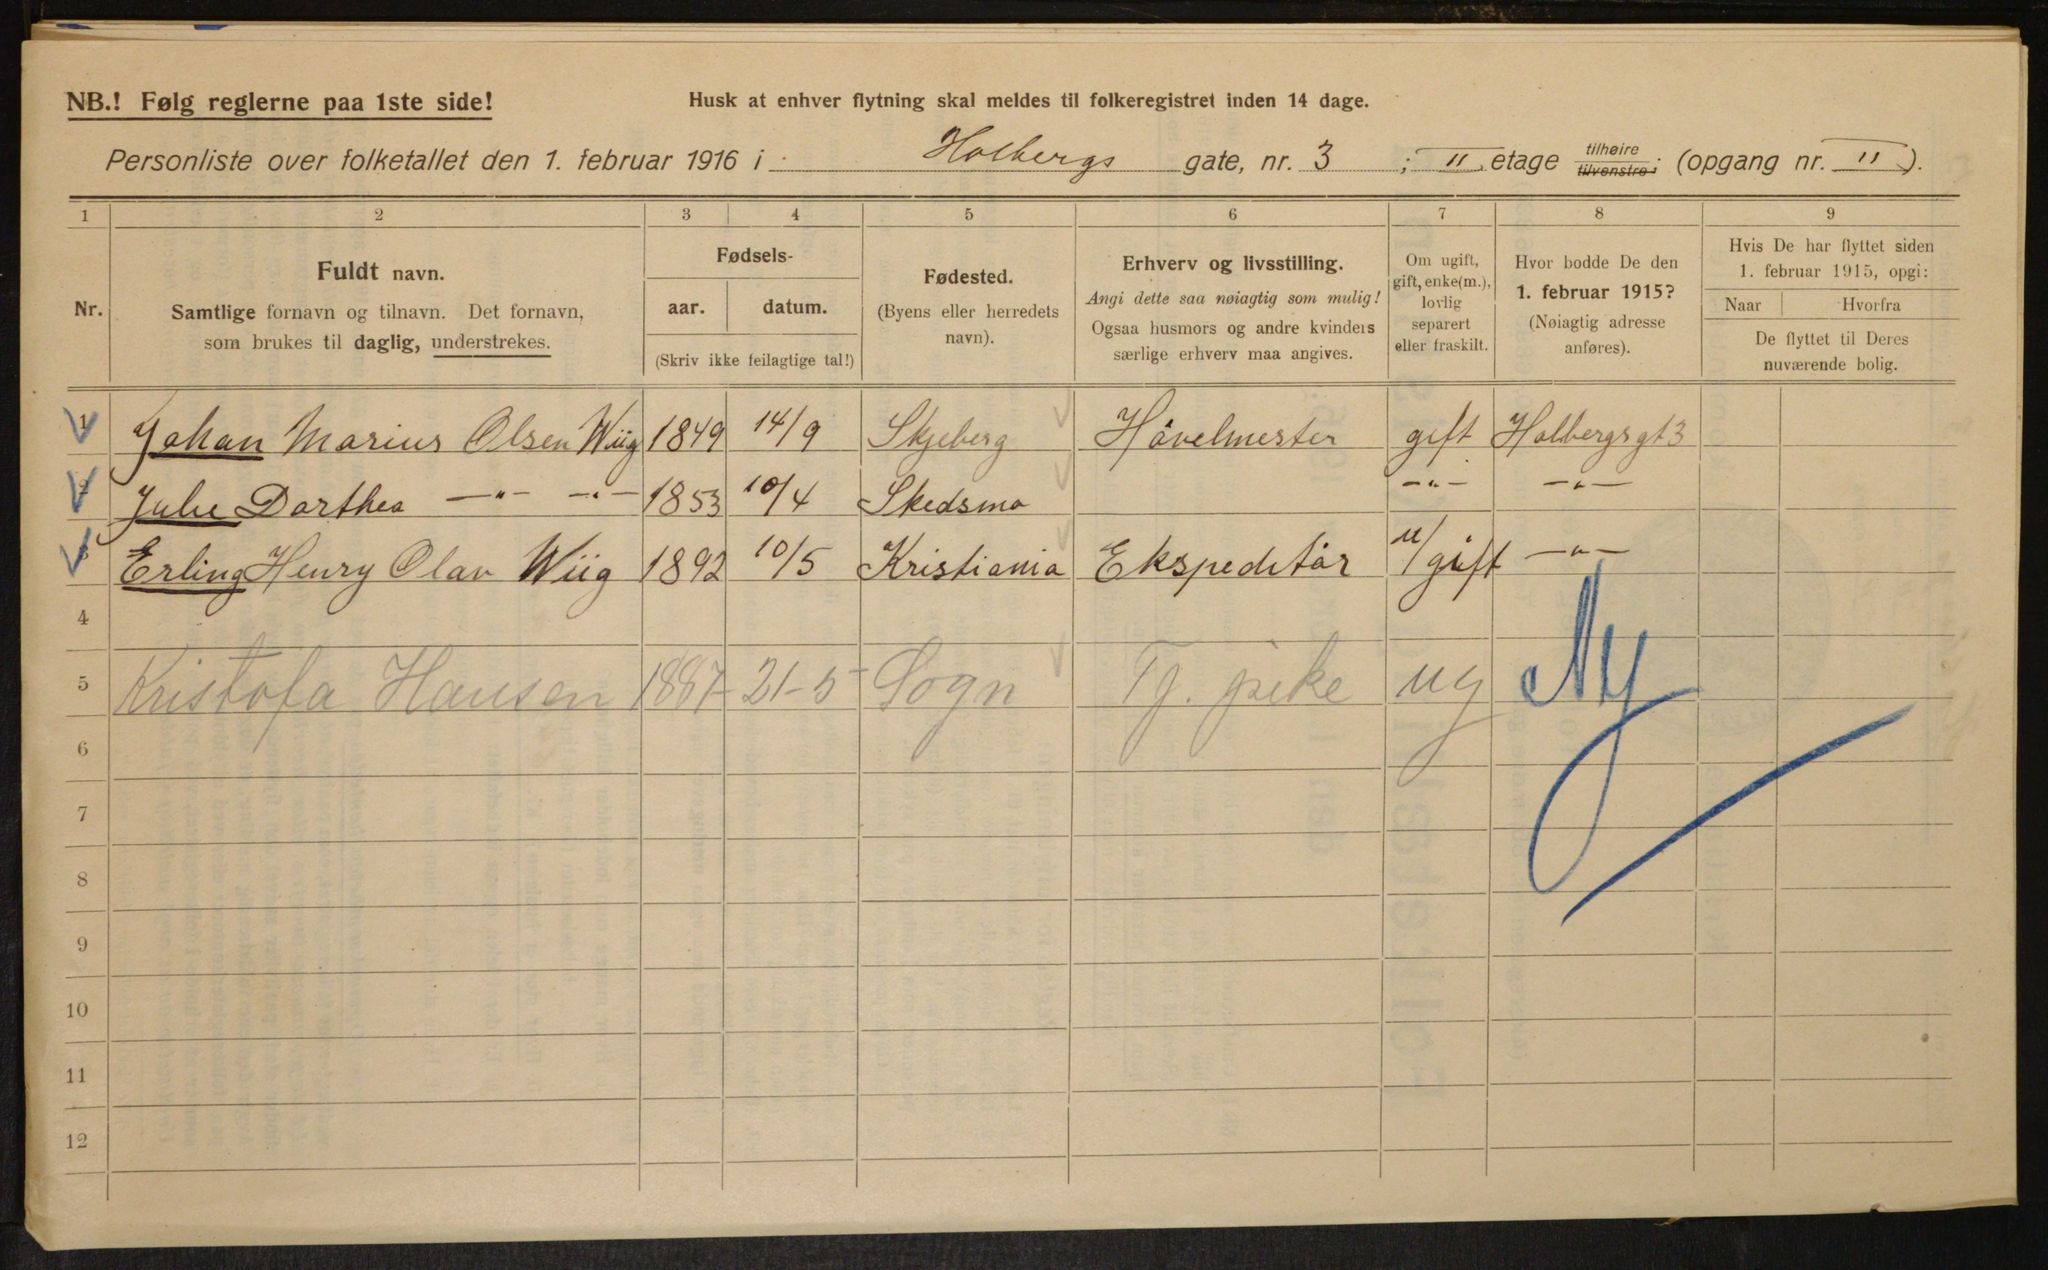 NB.! Følg reglerne paa 1ste side!
Husk at enhver flytning skal meldes til folkeregistret inden 14 dage.
Personliste over folketallet den 1. februar 1916 i Holbergs gate, nr. 3 ; II etage tilhøire tilvenstre; (opgang nr. II ).
1 2 3 4 5 6 7 8 9
Nr.
Fuldt navn.
Samtlige fornavn og tilnavn. Det fornavn,
som brukes til daglig, understrekes.
Fødsels-
aar. datum.
(Skriv ikke feilagtige tal!)
Fødested.
(Byens eller herredets
navn).
Erhverv og livsstilling.
Angi dette saa nøiagtig som mulig!
Ogsaa husmors og andre kvinders
særlige erhverv maa angives.
Om ugift,
gift, enke(m.),
lovlig
separert
eller fraskilt.
Hvor bodde De den
1. februar 1915?
(Nøiagtig adresse
anføres).
Hvis De har flyttet siden
1. februar 1915, opgi:
Naar Hvorfra
De flyttet til Deres
nuværende bolig.
1 Johan Marius Olsen Wiig 1849 14/9 Skjeberg Hövelmester gift Holbergsgt 3
2 Julie Dorthea —"— —"— 1853 10/4 Skedsmo —"— —"—
3 Erling Henry Olav Wiig 1892 10/5 Kristiania Ekspeditør u/gift —"—
4
5 Kristofa Hansen 1887 21-5 Sogn Tj. pike ug Ny
6
7
8
9
10
11
12